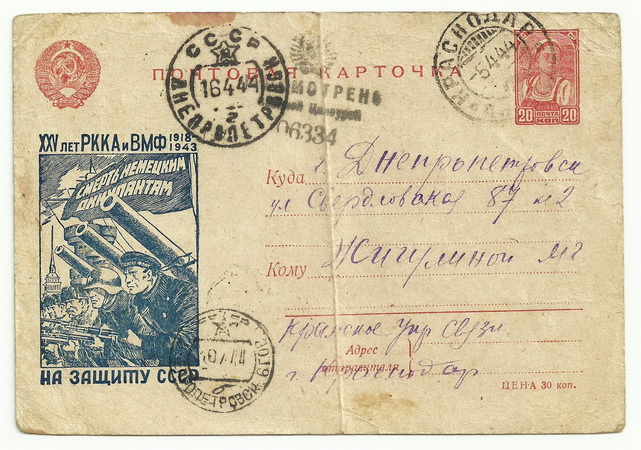 ПОЧТОВАЯ КАРТОЧКА
СССР
16 4 44
ДНЕПРОПЕТРОВСК
г
06334
КРАСНОДАР
-6 4 44
20 ПОЧТА 20
КОП
XXV ЛЕТ РККА и ВМФ 1918-1943
СМЕРТЬ НЕМЕЦКИМ
ОККУПАНТАМ
НА ЗАЩИТУ СССР
Куда г. Днепропетровск
ул Свердловская 87 м 2
Кому Жигулиной
Адрес
отправителя
г. Краснодар
ЦЕНА 30 коп.